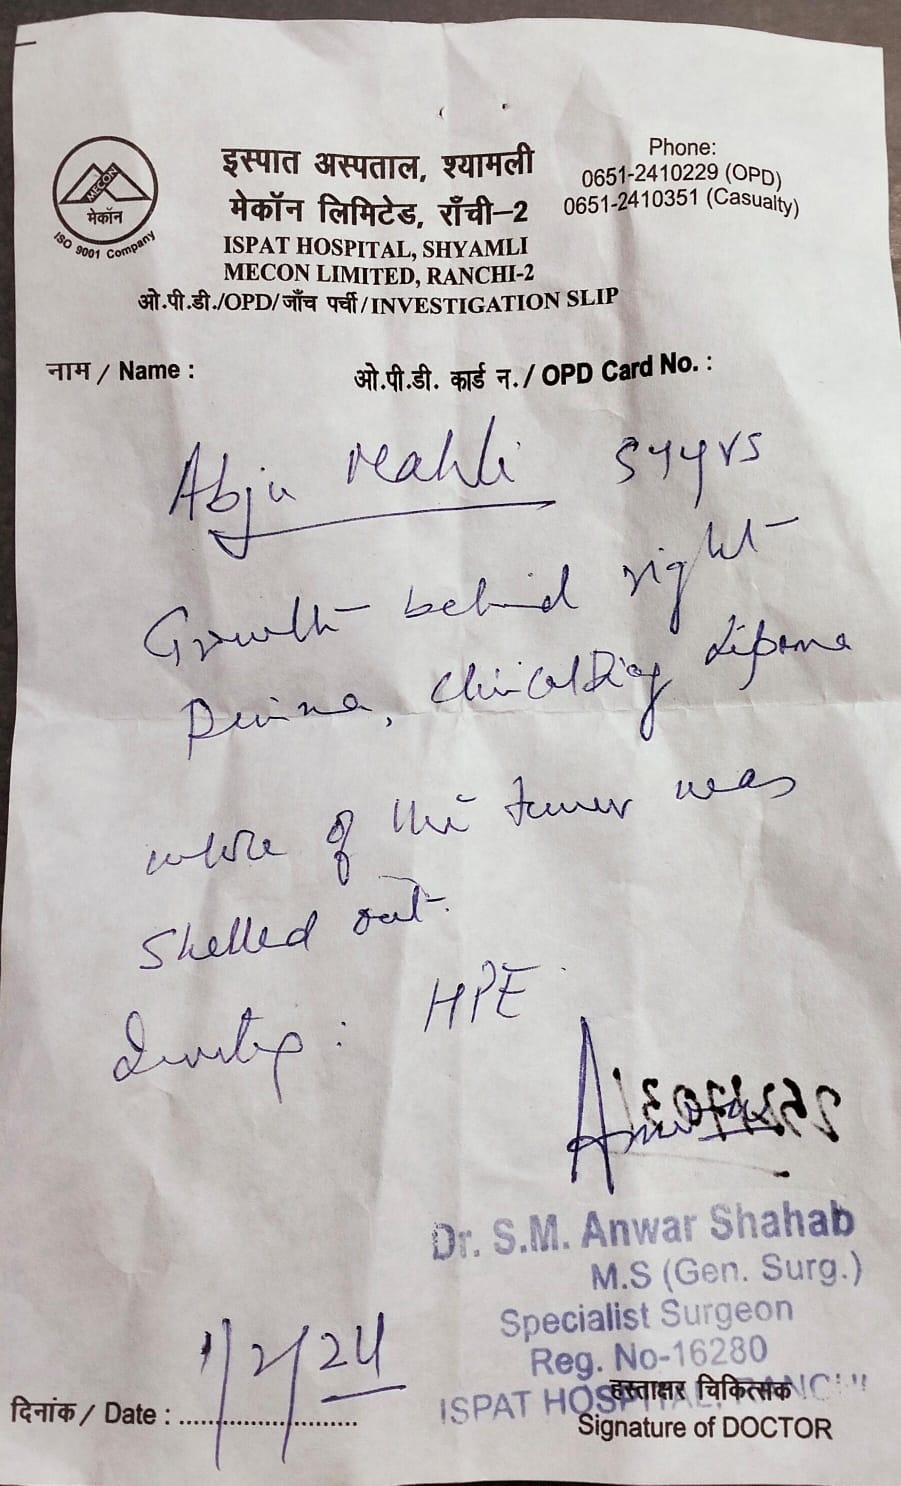 MECON
मेकॉन
ISO 9001 Company
इस्पात अस्पताल, श्यामली
मेकॉन लिमिटेड, राँची–2
ISPAT HOSPITAL, SHYAMLI
MECON LIMITED, RANCHI-2
ओ.पी.डी./OPD/जाँच पर्ची/INVESTIGATION SLIP
Phone:
0651-2410229 (OPD)
0651-2410351 (Casualty)
नाम / Name :
ओ.पी.डी. कार्ड न. / OPD Card No. :
Abju Mahli yrs
Growth behind right
Pinna, Clinical Diag Lipoma
whole of the tumor was
Shelled out.
HPE
Dr. S.M. Anwar Shahab
M.S (Gen. Surg.)
Specialist Surgeon
Reg. No-16280
ISPAT HOSPITAL, RANCHI
हस्ताक्षर चिकित्सक
Signature of DOCTOR
दिनांक / Date : 1/2/24